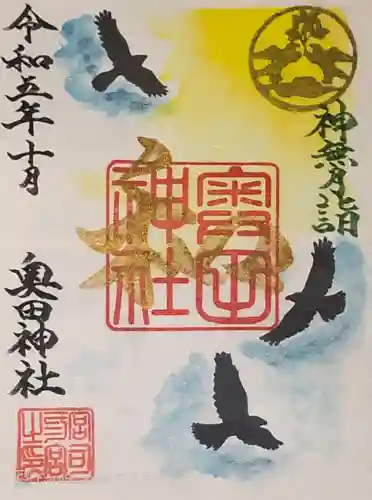 神無月詣
奥田神社
令和五年十月
奥田神社
宮司之印